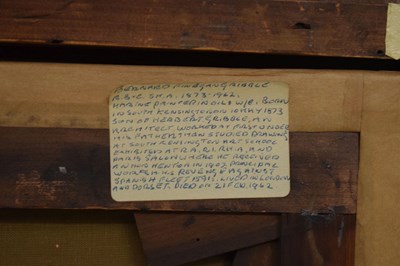 BERNARD FINEGAN GRIBBLE
R.B.C. S.M.A. 1873-1962.
MARINE PAINTER IN OILS W/C. BORN
IN SOUTH KENSINGTON 10 MAY 1873
SON OF HERBERT GRIBBLE, AN
ARCHITECT. WORKED AT FIRST UNDER
HIS FATHER THEN STUDIED DRAWING
AT SOUTH KENSINGTON ART SCHOOL
EXHIBITED AT R.A, R.I, R.H.A AND
PARIS SALON WHERE HE RECEIVED
AN HON MENTION IN 1907. PRINCIPAL
WORKS REVENGE AGAINST
SPANISH FLEET 1591. LIVED IN LONDON
AND DORSET. DIED ON 21 FEB. 1962